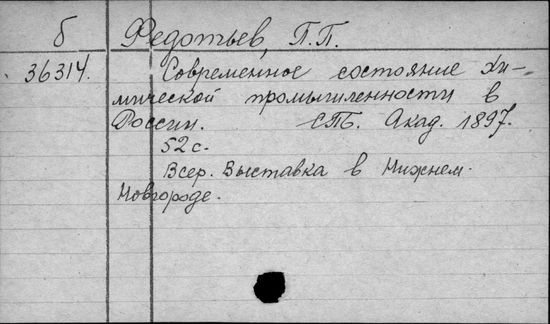 б Федотьев, П.П.
36314. Современное состояние хи-
мической промышленности в
России. СПБ. Акад. 1897.
52 с.
Всер. Выставка в Нижнем
Новгороде.